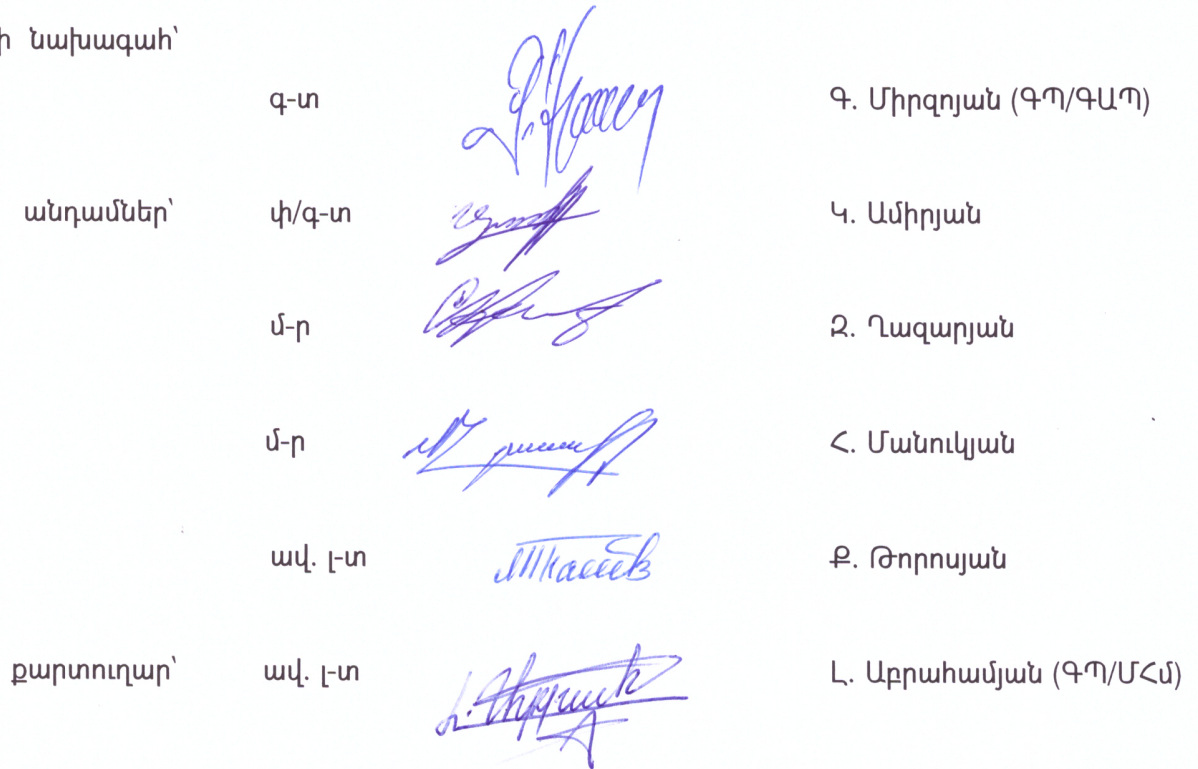 ի նախագահ՝
գ-տ Գ. Միրզոյան (ԳՊ/ԳԱՊ)
անդամներ՝ փ/գ-տ Կ. Ամիրյան
մ-ր Զ. Ղազարյան
մ-ր Հ. Մանուկյան
ավ. լ-տ Ք. Թորոսյան
քարտուղար՝ ավ. լ-տ Լ. Աբրահամյան (ԳՊ/ՄՀմ)